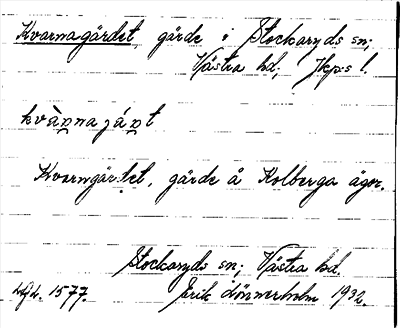 Kvarnagärdet, gärde i Stockaryds sn;
Västra hd, Jkps l.
kvàṉnajáṉt
Kvarngärtet, gärde å Kolberga ägor.
Stockaryds sn; Västra hd.
1577. Erik Lönnerholm 1932.